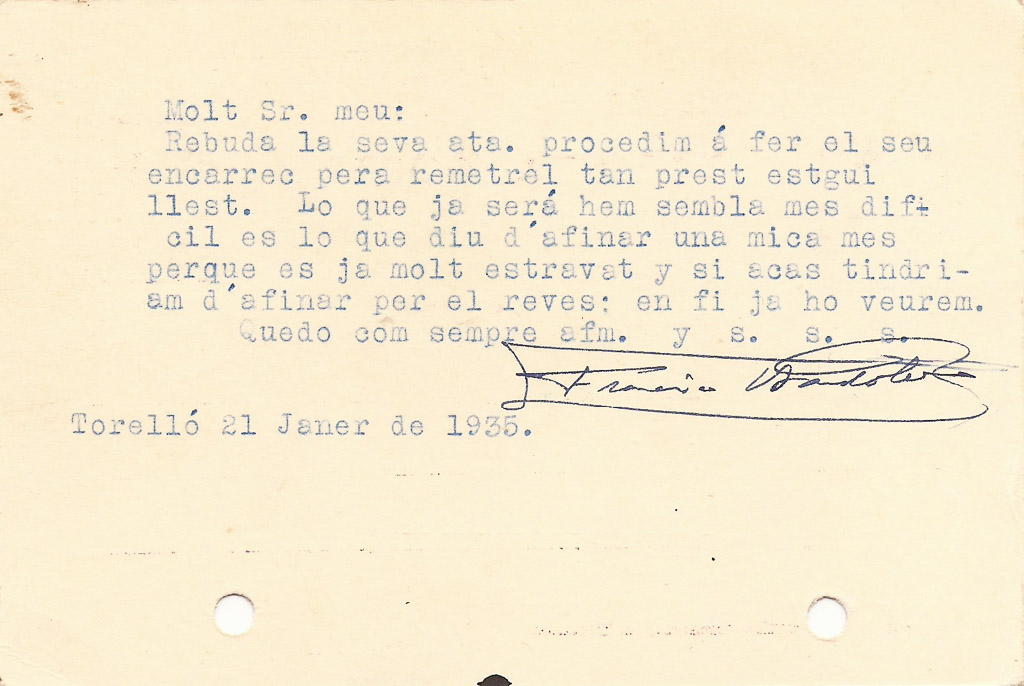 Molt Sr. meu:
Rebuda la seva ata. procedim á fer el seu
encarrec pera remetrel tan prest estgui
llest. Lo que ja será hem sembla mes difi
cil es lo que diu d´afinar una mica mes
perque es ja molt estravat y si acas tindri-
am d´afinar per el reves: en fi ja ho veurem.
Quedo com sempre afm. y s. s. s.
Torelló 21 Janer de 1935.